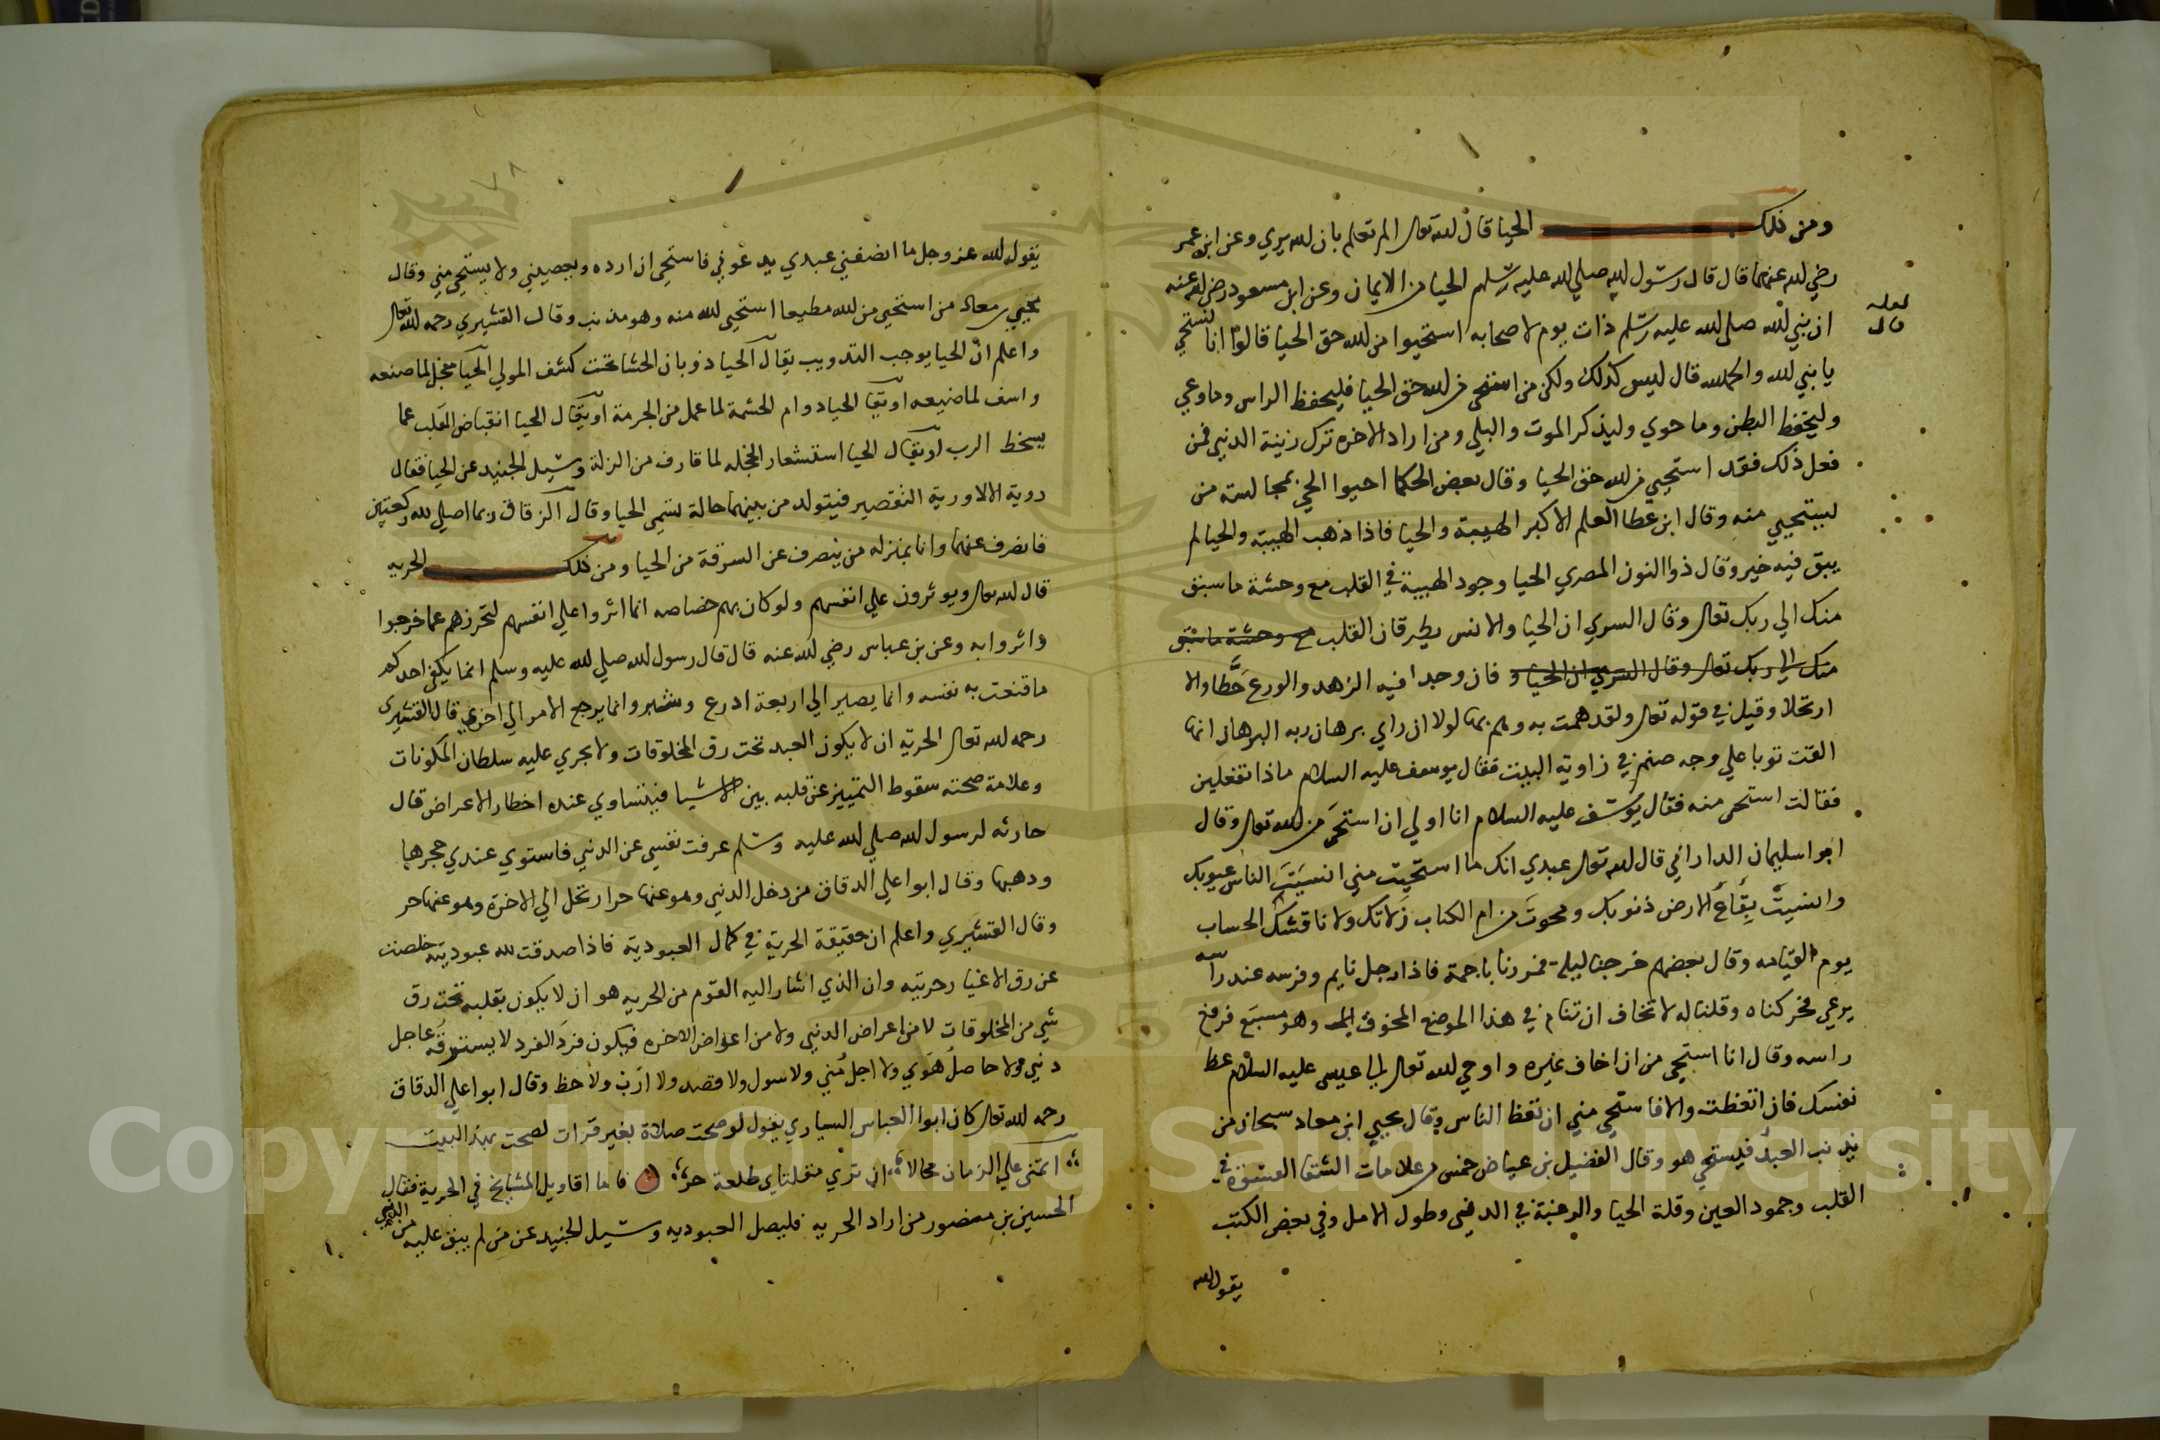 ومن ذلك الحيا قال الله تعالى الم تعلم بان الله يري وعن ابن عمر
رضي الله عنهما قال قال رسول الله صلي الله عليه وسلم الحيا من الايمان وعن ابن مسعود رضي الله عنه
لعله قال
ان نبي الله صلى الله عليه وسلم ذات يوم لاصحابه استحيوا من الله حق الحيا قالوا انا لنستحي
يا نبي الله والحمد لله قال ليس كذلك ولكن من استحى من الله حق الحيا فليحفظ الراس وما وعي
وليحفظ البطن وما حوي وليذكر الموت والبلي ومن اراد الاخرة ترك زينة الدنيي فمن
فعل ذلك فقد استحيي من الله حق الحيا وقال بعض الحكما احيوا الحيي بمجالسة من
يستحيي منه وقال ابن عطا العلم الاكبر الهيبة والحيا فاذا ذهب الهيبة والحيا لم
يبق فيه خير وقال ذوا النون المصري الحيا وجود الهيبة في القلب مع وحشة ما سبق
منك الي ربك تعالى وقال السري ان الحيا والانس يطرقان القلب مع وحشة ما سبق
منك الي ربك تعالى وقال السري ان الحيا و فان وجدا فيه الزهد والورع حطا والا
ارتحلا وقيل في قوله تعالى ولقد همت به وهم بها لولا ان راي برهان ربه البرهان انها
القت ثوبا علي وجه صنم في زاوية البيت فقال يوسف عليه السلام ماذا تفعلين
فقالت استحى منه فقال يوسف عليه السلام انا اولي ان استحى من الله تعالى وقال
ابوا سليمان الداراني قال الله تعالى عبدي انك ما استحيت مني انسيت الناس عيوبك
وانسيت بقاع الارض ذنوبك ومحوت من ام الكتاب زلاتك ولا ناقشك الحساب
يوم القيامه وقال بعضهم خرجنا ليلة فمررنا باجمة فاذا رجل نايم وفرسه عند راسه
يرعي فحركناه وقلنا له لا تخاف ان تنام في هذا الموضع المخوف وهو مسبع فرفع
راسه وقال انا استحي من ان اخاف غيره واوحي الله تعالى الي عيسى عليه السلام عظ
نفسك فان اتعظت والا فاستحي مني ان تعظ الناس وقال يحيي ابن معاد سبحان من
يذنب العبد فيستحي هو وقال الفضيل بن عياض خمس من علامات الشقا القسوة في
القلب وجمود العين وقلة الحيا والرغبة في الدنيى وطول الامل وفي بعض الكتب
يقول الله
٧٨
يقول الله عز وجل ما انصفني عبدي يدعوني فاستحي ان ارده ويعصيني ولا يستحي مني وقال
يحيي بن معاد من استحيى من الله مطيعا استحيى الله منه وهو مذنب وقال القشيري رحمه الله تعالى
واعلم ان الحيا يوجب التذويب يقال الحيا ذوبان الحشا تحت كشف المولي الحيا مخجل لما صنعه
واسف لما ضيعه او يقال الحيا دوام الحشمة لما عمل من الجرمة او يقال الحيا انقباض القلب عما
يسخط الرب او يقال الحيا استشعار الخجله لما قارف من الزلة وسيل الجنيد عن الحيا فقال
روية الالا وروية التقصير فيتولد من بينهما حالة تسمى الحيا وقال الزقاق ربما اصلي لله ركعتين
فانصرف عنهما وانا بمنزله من ينصرف عن السرقة من الحيا ومن ذلك الحريه
قال الله تعالى ويوئرون علي انفسهم ولو كان بهم خصاصه انما اثروا علي انفسهم لتحرزهم عما خرجوا
واثروا به وعن بن عباس رضي الله عنه قال قال رسول الله صلي الله عليه وسلم انما يكفي احدكم
ما قنعت به نفسه وانما يصير الي اربعة ادرع وشبر وانما يرجع الامر الي اخره قال القشيرى
رحمه الله تعالى الحرية ان لا يكون العبد تحت رق المخلوقات ولا يجري عليه سلطان المكونات
وعلامة صحته سقوط التمييز عن قلبه بين الاشيا فيتساوي عنده اخطار الاعراض قال
حارثه لرسول الله صلي الله عليه وسلم عرفت نفسي عن الدنيي فاستوي عندي حجرها
ودهبها وقال ابوا علي الدقاق من دخل الدنيي وهو عنها حرا رتحل الي الاخرة وهو عنها حر
وقال القشيري واعلم ان حقيقة الحرية في كمال العبودية فاذا صدقت لله عبوديته خلصت
عن رق الاغيار حريته وان الذي اشار اليه القوم من الحريه هو ان لا يكون بقلبه تحت رق
شي من المخلوقات لا من اعراض الدنيي ولا من اعواض الاخره فيكون فرد الفرد لا يسترقه عاجل
دنيي ولا حاصل هوي ولا اجل مني ولا سول ولا قصد ولا ارب ولا حظ وقال ابوا علي الدقاق
رحمه الله تعالى كان ابوا العباس السياري يقول لو صحت صلاة بغير قران لصحت بهذا البيت
اتمنى علي الزمان محالا ان تري مقلتاي طلعة حر فاما اقاويل المشايخ في الحرية فقال
الحسين بن منصور من اراد الحريه فليصل العبوديه وسيل الجنيد عن من لم يبق عليه من الدنيي